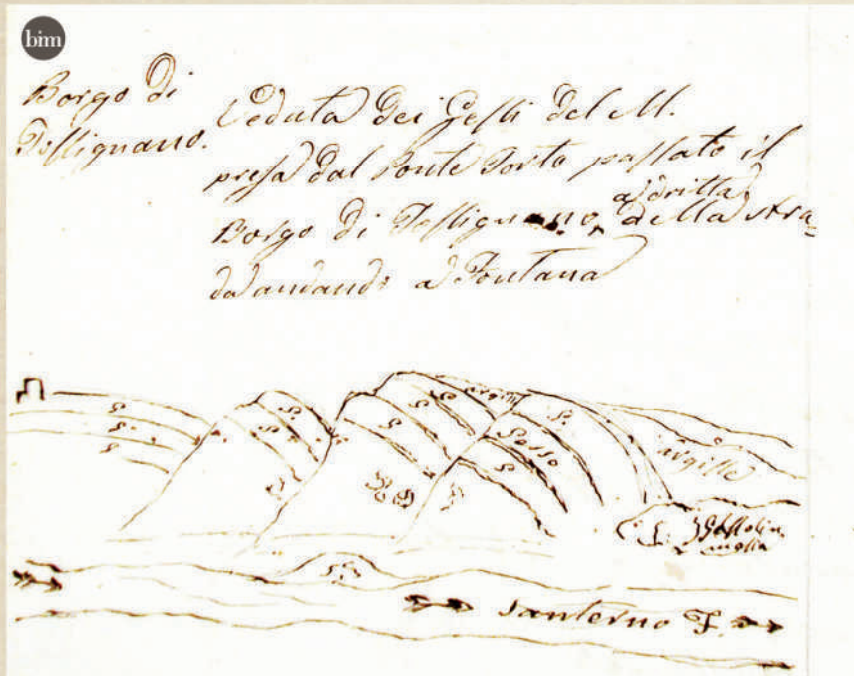 bim
Borgo di
Tossignano.
Veduta dei Gessi del M.
presa dal Ponte Torto passato il
Borgo di Tossignano, a dritta della stra=
da andando a Fontana
G.
G.
G.
G.
G.
G.
G.
G.
G.
Gesso
G.
argille
Santerno F.